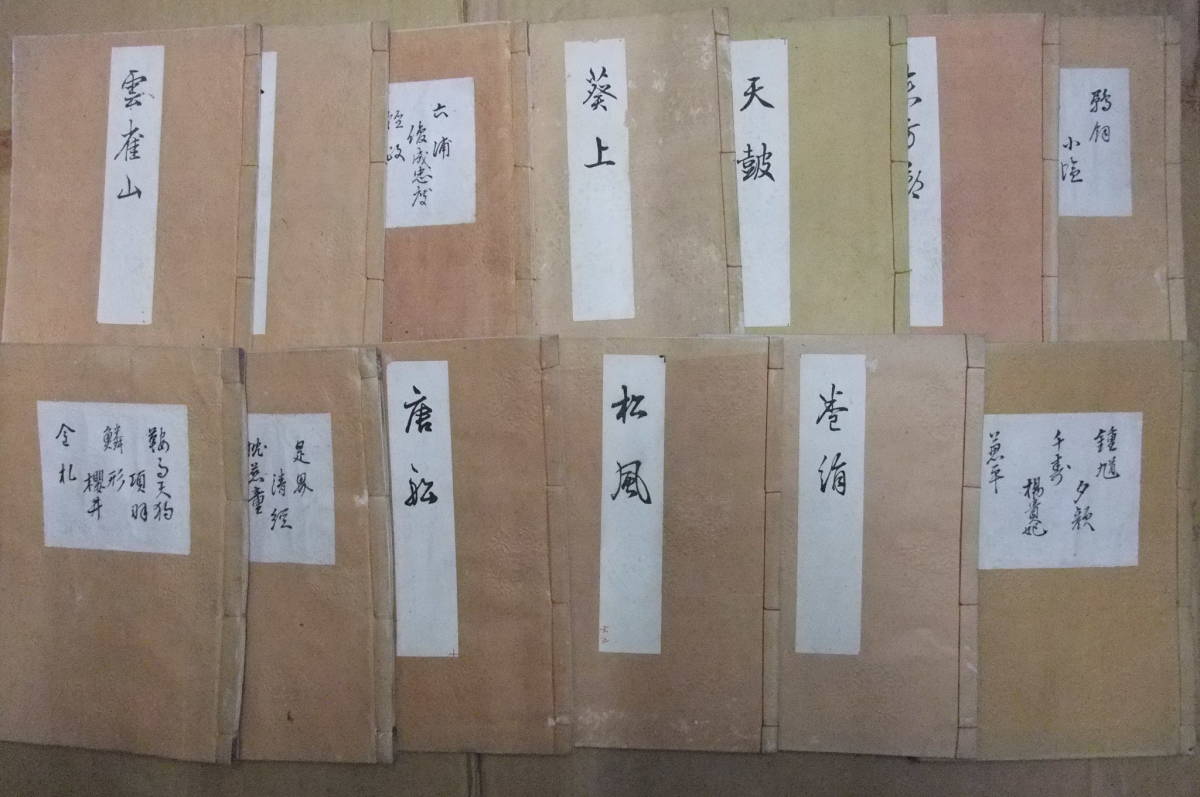 雲雀山
六浦
俊成忠度
経政
葵上
天鼓
小塩
鞍馬天狗
項羽
鱗形
櫻井
金札
是界
清経
枕慈童
唐船
松風
巻絹
鍾馗
夕顔
千寿
楊貴妃
兼平